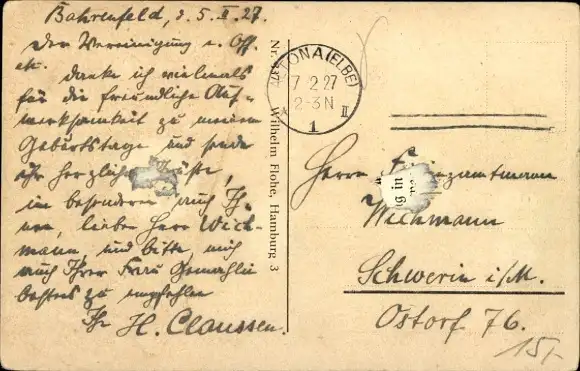 Bahrenfeld, d. 5. II. 27.
Der Vereinigung e. Off.
etc. danke ich vielmals
für die freundliche Auf-
merksamkeit zu meinem
Geburtstage und sende
ihr herzliche Grüße,
im besonderen auch Ih-
nen, lieber Herr Wich-
mann, und bitte, mich
auch Ihrer Frau Gemahlin
bestens zu empfehlen
Ihr H. Claussen.
Wilhelm Flohe, Hamburg 3
ALTONA (ELBE)
7 2 27
2-3 N
* II
1
Herrn
Wichmann
Schwerin i/M.
Ostorf 76.
15,-